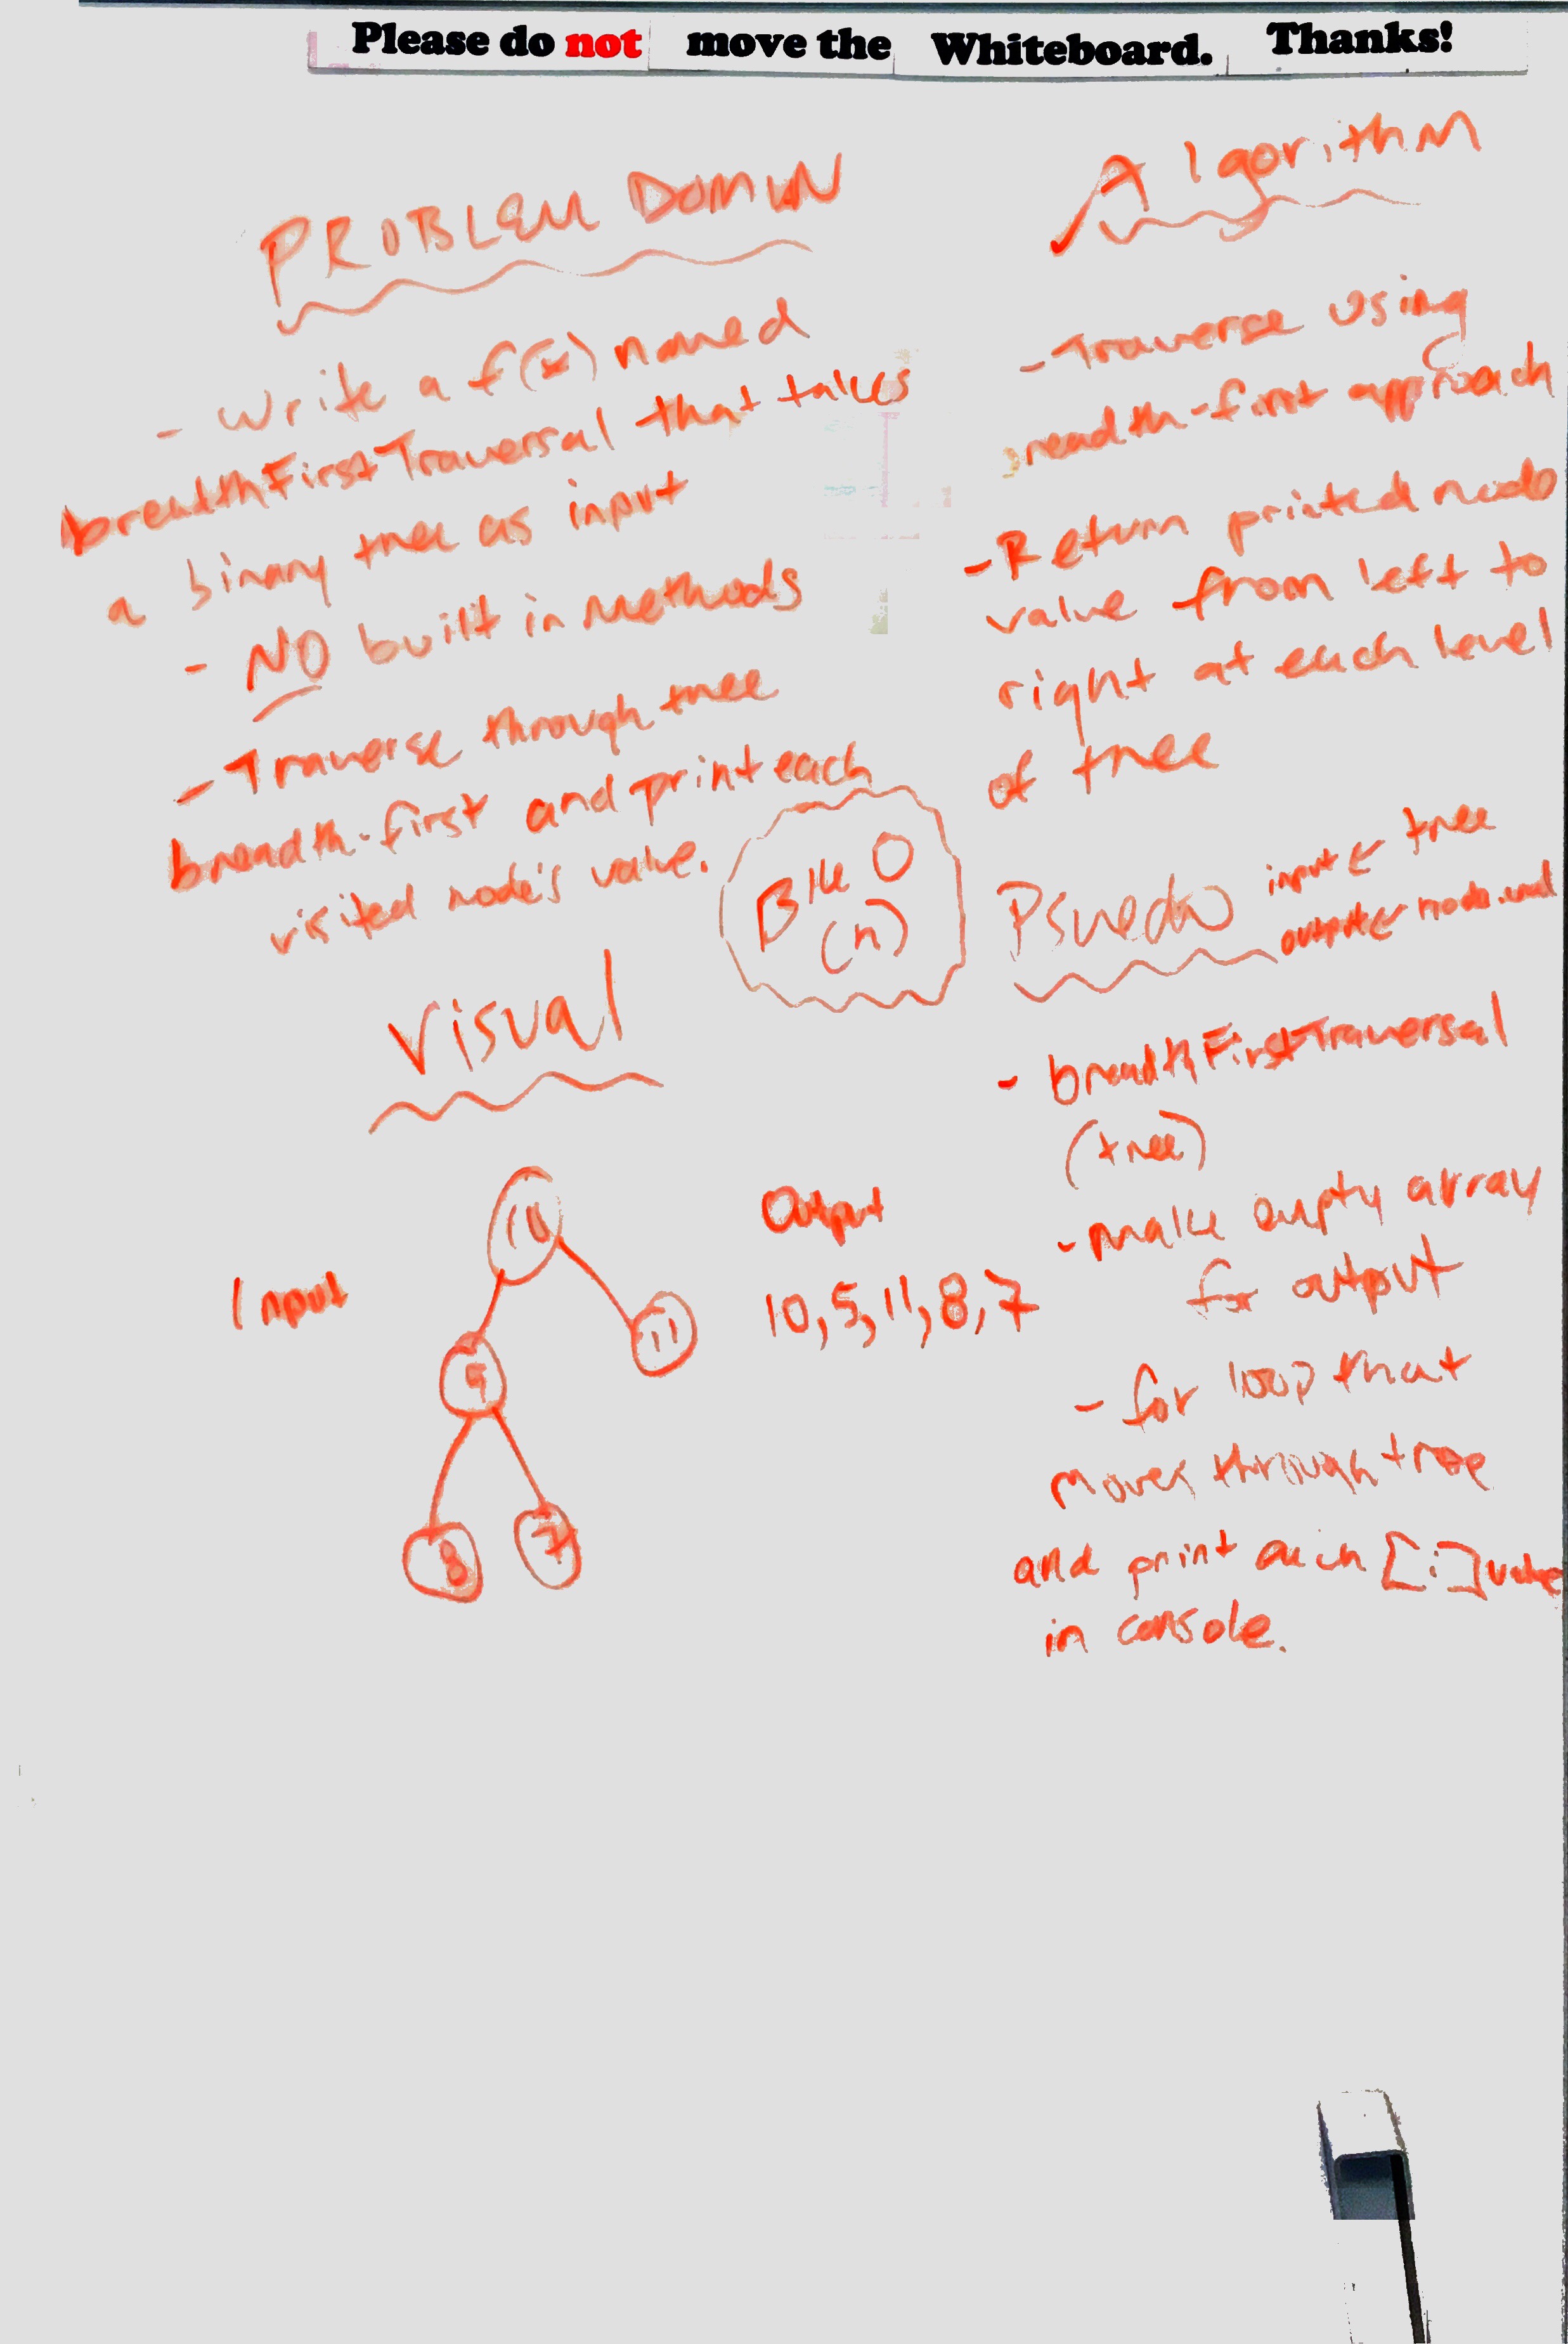 Please do not move the Whiteboard. Thanks!
PROBLEM DOMAIN
- Write a f(x) named
breadthFirstTraversal that takes
a binary tree as input
- NO built in methods
- Traverse through tree
breadth-first and print each
visited node's value.
Visual
Input
10
5
11
8
7
Output
10, 5, 11, 8, 7
Big O
(n)
Algorithm
- Traverse using
breadth-first approach
- Return printed node
value from left to
right at each level
of tree
Psuedo
input ← tree
output ← node.val
- breadthFirstTraversal
(tree)
- make empty array
for output
- for loop that
moves through tree
and print each [i] value
in console.